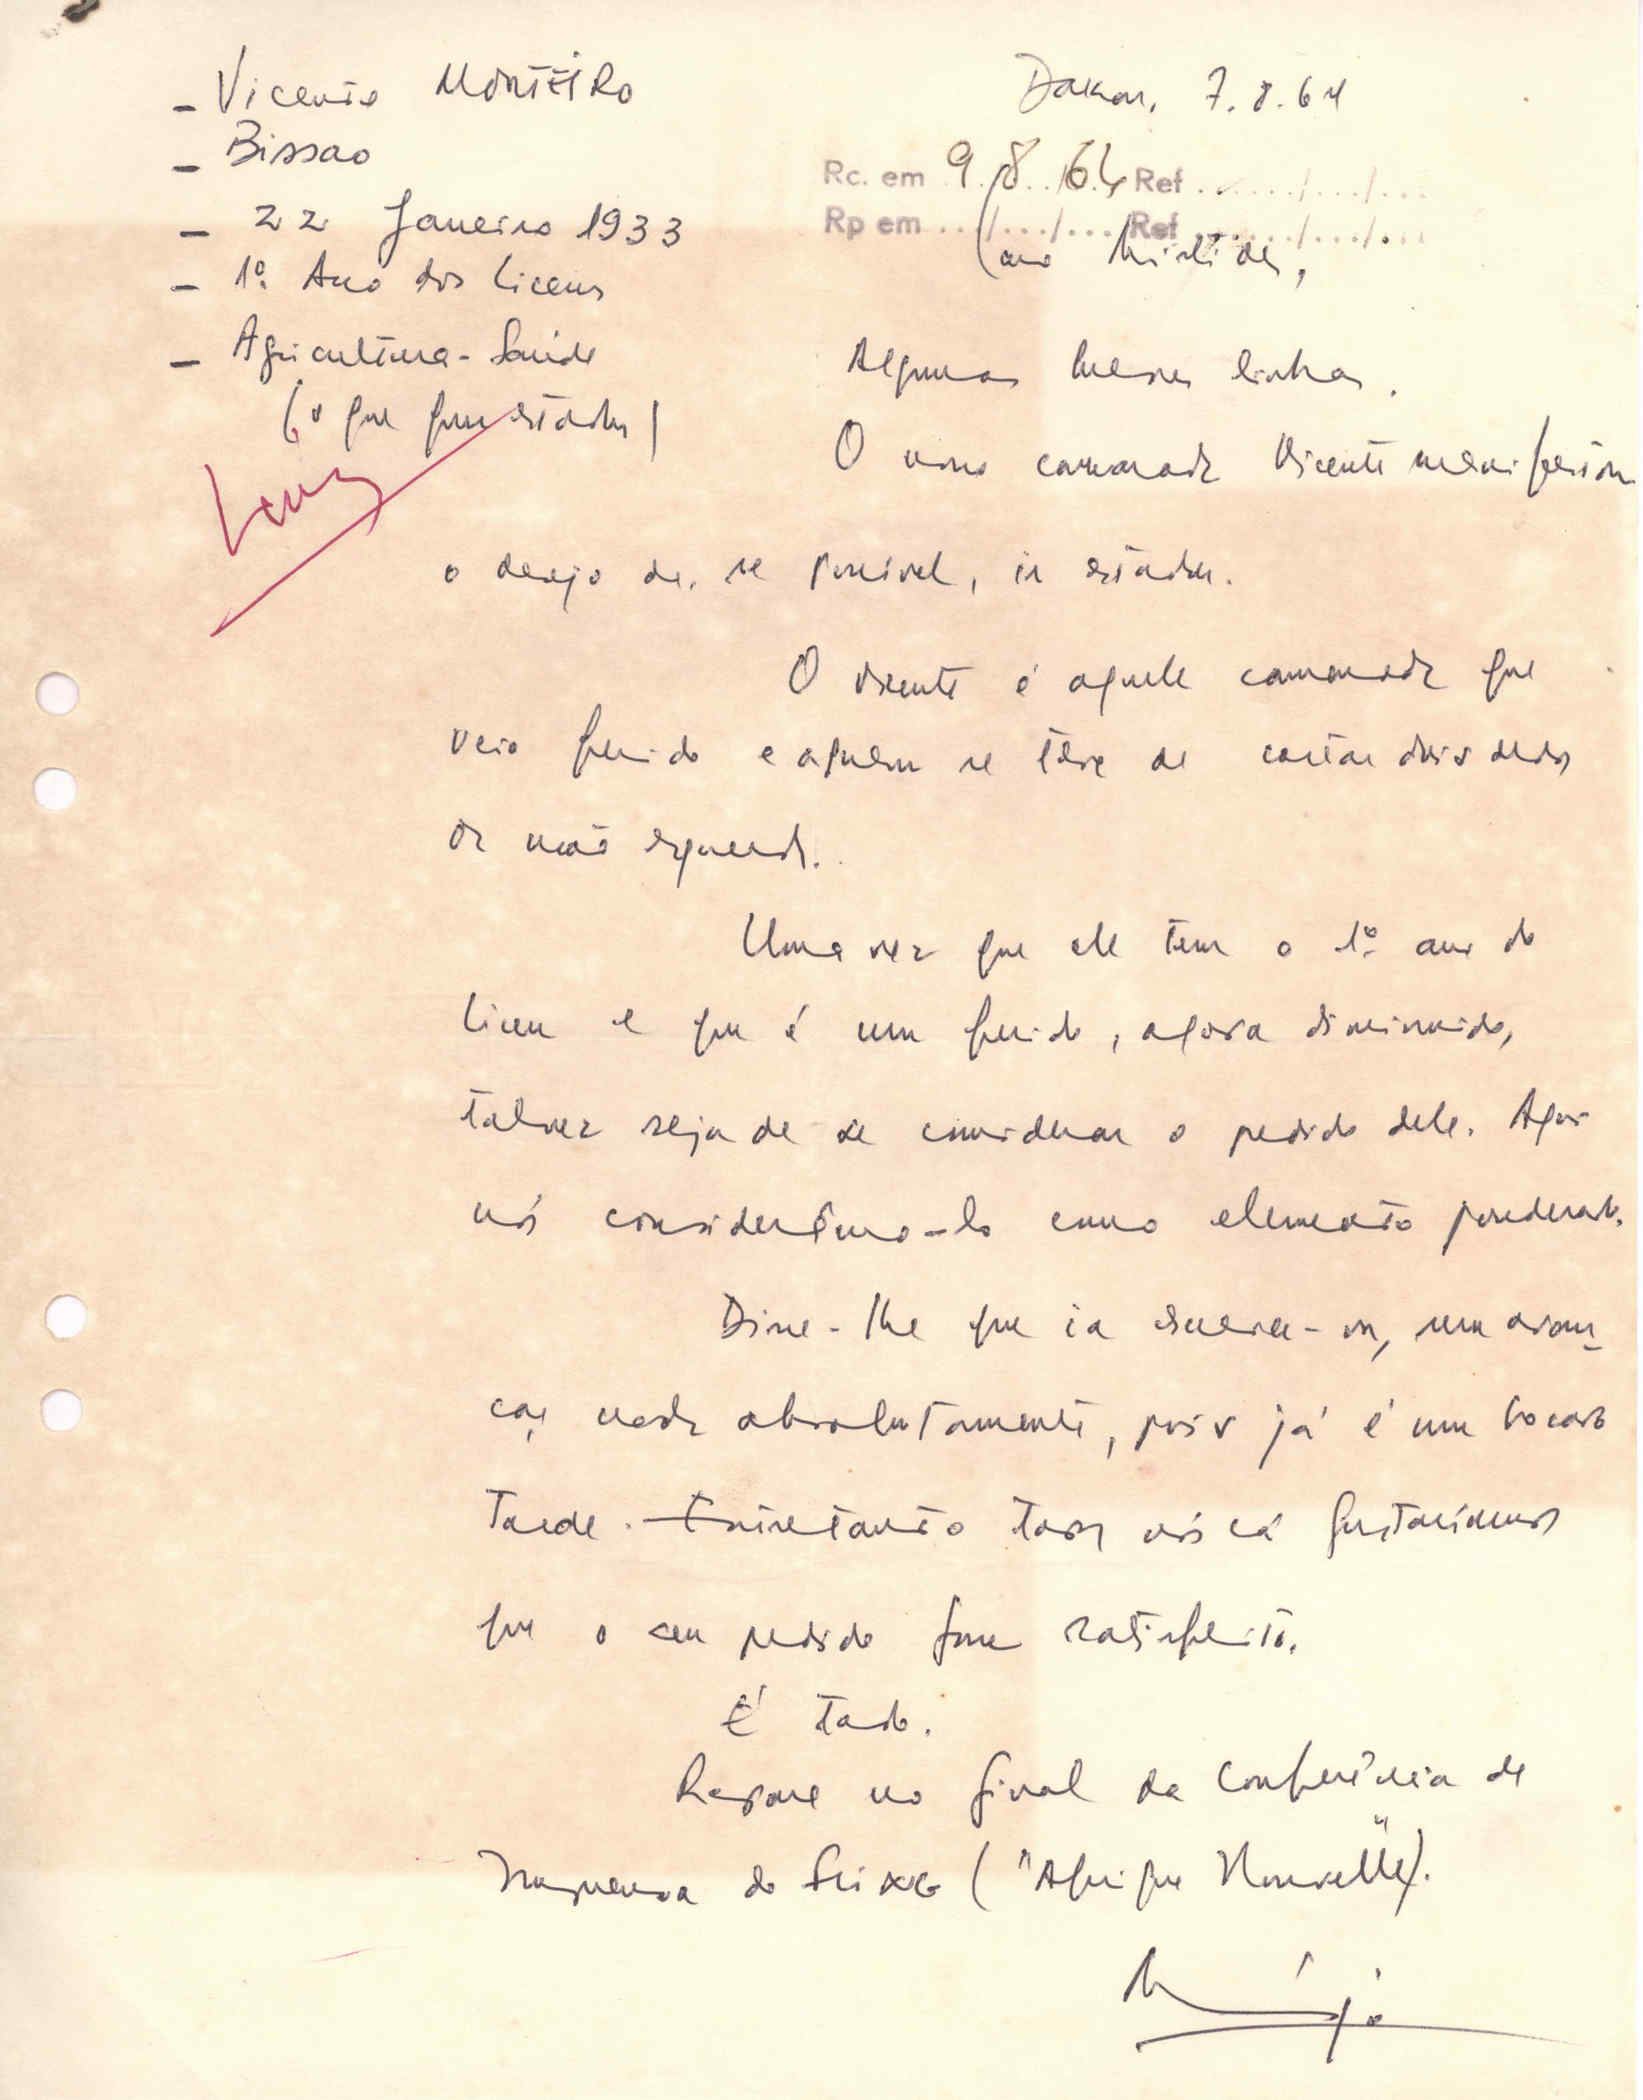 - Vicente MONTEIRO
- Bissao
- 22 Janeiro 1933
- 1º. Ano dos Liceus
- Agricultura - Saúde
(o que quer estudar)
Dakar, 7.8.64
Rc. em 9/8/64 Ref ....../..../....
Rp em ..../..../.... Ref ....../..../....
Caro Aristides,
Algumas breves linhas.
O nosso camarada Vicente manifestou
o desejo de, se possível, ir estudar.
O Vicente é aquele camarada que
veio ferido e a quem se teve de cortar dois dedos
da mão esquerda.
Uma vez que ele tem o 1º ano do
liceu e que é um ferido, agora diminuido,
talvez seja de se considerar o pedido dele. Aqui
nós considerâmo-lo como elemento ponderado.
Disse-lhe que ia escrever-vos, sem avan_
çar nada absolutamente, pois já é um bocado
tarde. Entretanto todos nós cá gostaríamos
que o seu pedido fosse satisfeito.
É tudo.
Repare no final da Conferência de
Imprensa do (" Afrique Nouvelle").